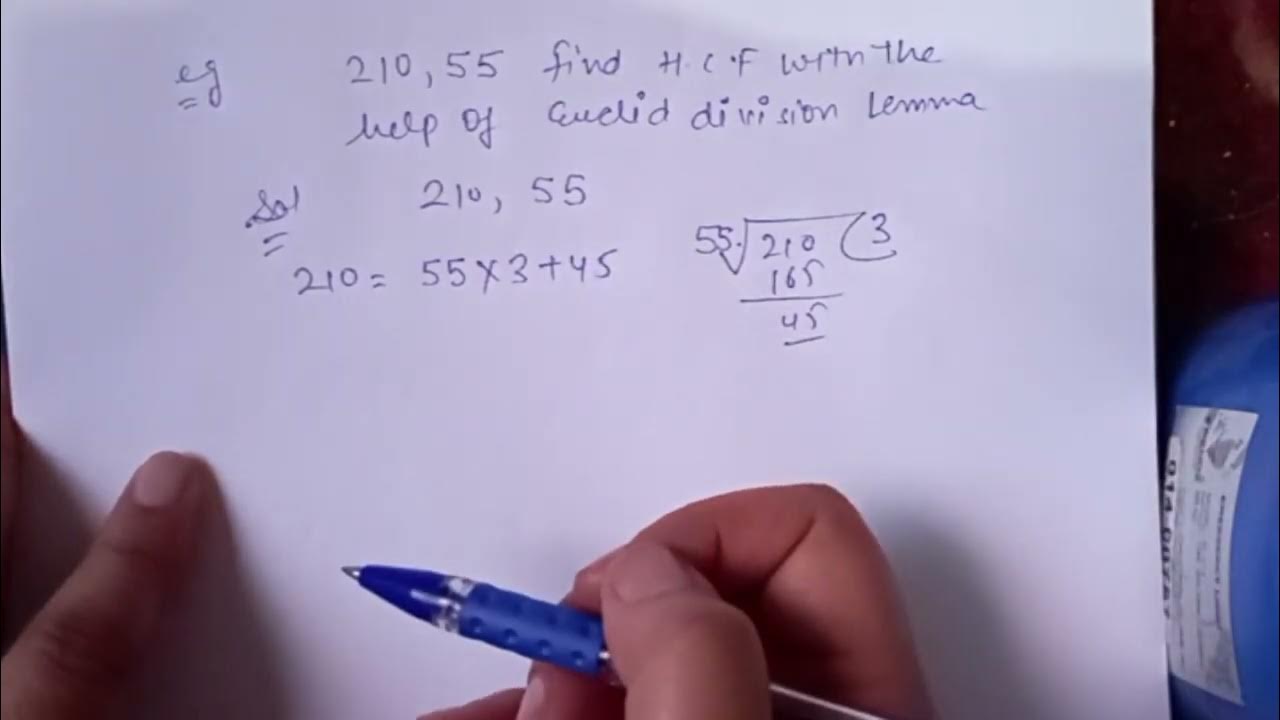 eg 210, 55 find H.C.F with the
help of Euclid division Lemma
Sol 210, 55
210 = 55 × 3 + 45
55 210 3
165
45